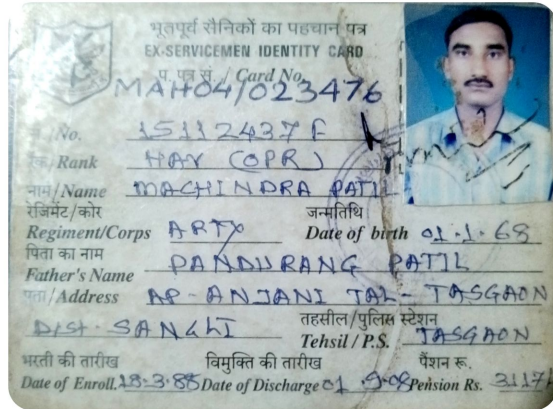 भूतपूर्व सैनिकों का पहचान पत्र
EX-SERVICEMEN IDENTITY CARD
प. पत्र सं. / Card No.
MAH04/023476
No. 15112437F
रैंक/Rank HAV (OPR)
नाम/Name MACHINDRA PATIL
रेजिमेंट/कोर जन्मतिथि
Regiment/Corps ARTY Date of birth 01.1.68
पिता का नाम
Father's Name PANDURANG PATIL
पता/Address AP-ANJANI TAL-TASGAON
DIST. SANGLI तहसील/पुलिस स्टेशन
Tehsil/P.S. TASGAON
भरती की तारीख विमुक्ति की तारीख पैंशन रू.
Date of Enroll. 18.3.88 Date of Discharge 01 Pension Rs. 3117